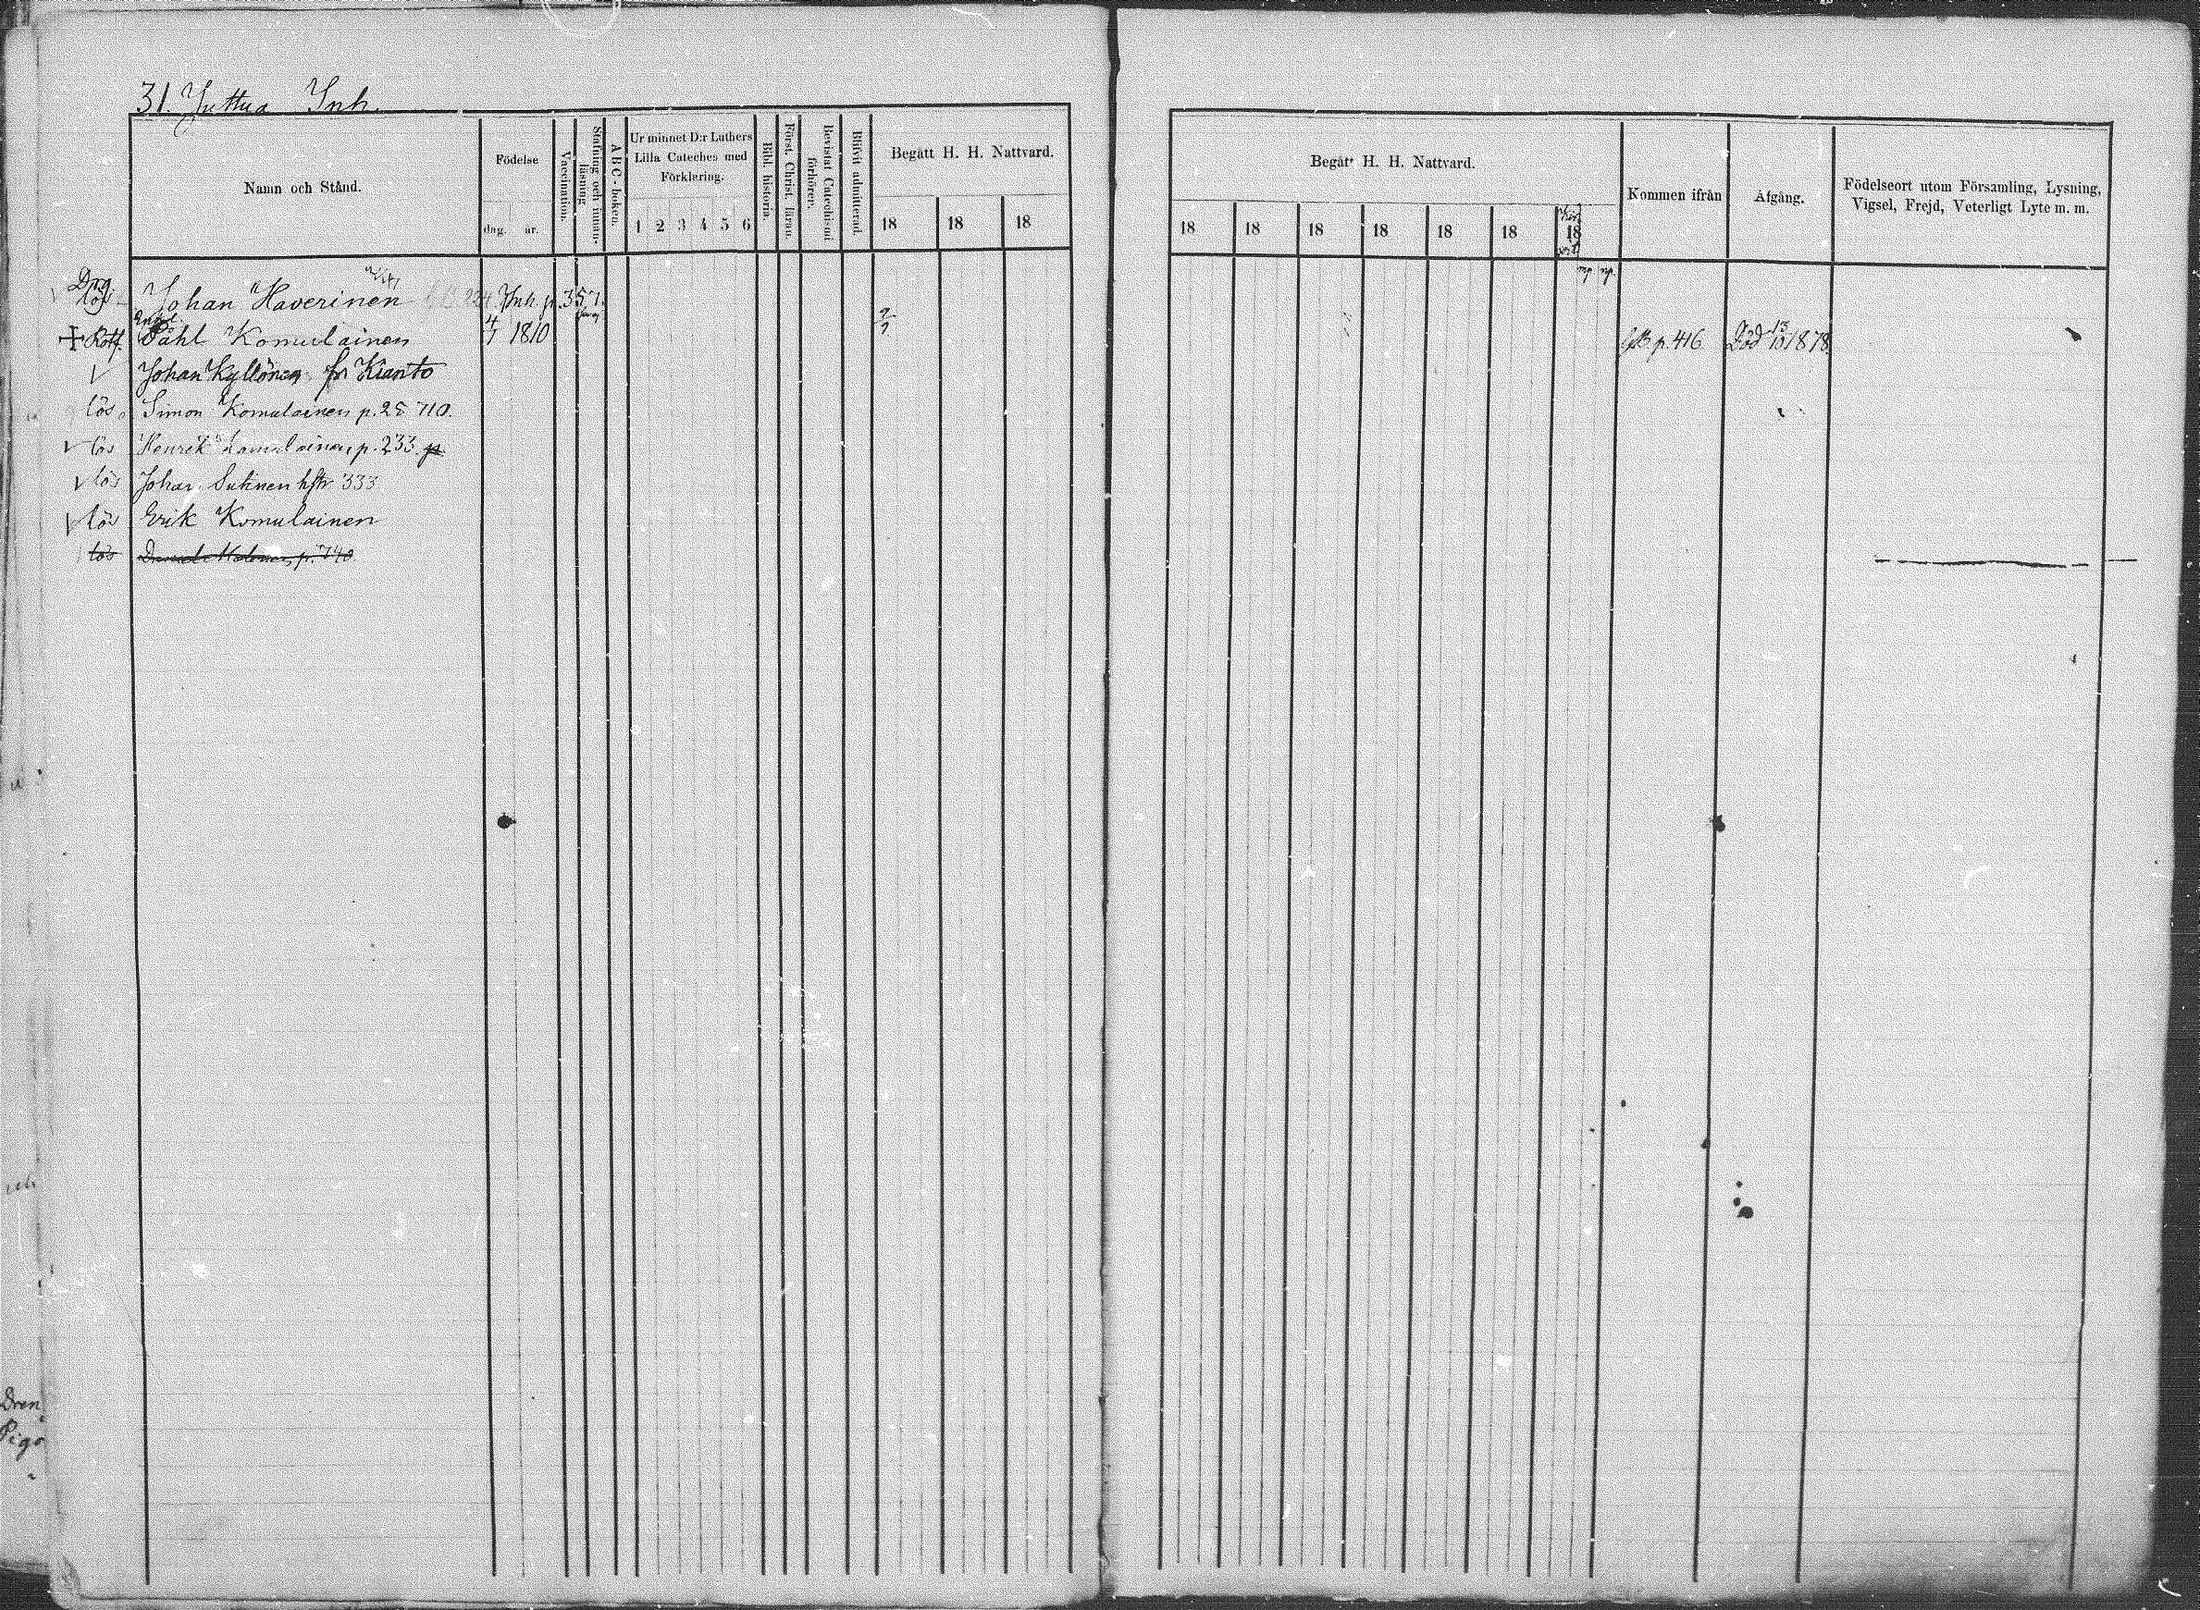 31. Juttua Inh.
Namn och Stånd.
Födelse
dag. år.
Vaccination.
Stafning och innan-
läsning
A B C - boken.
Ur minnet D:r Luthers
Lilla Cateches med
Förklaring.
1 2 3 4 5 6
Bibl. historia.
Först. Christ. läran.
Bevistat Catechismi
förhörer.
Blifvit admitterad.
Begått H. H. Nattvard.
18 18 18
Begått H. H. Nattvard.
18 18 18 18 18 18 18
Kommen ifrån
Afgång.
Födelseort utom Församling, Lysning,
Vigsel, Frejd, Veterligt Lyte m. m.
Drg
lös Johan Haverinen Inh. p. 357.
Enkl
Rotf. Påhl Komulainen 4/7 1810 9/7 p. 416 Död 13/10 1878
Johan Kyllönen fr Kianto
lös Simon Komulainen p. 25 710.
lös Henrik Komulainen p. 233
lös Johan Sutinen hftr 333
lös Erik Komulainen
lös p. 740.
Dren
Pigo